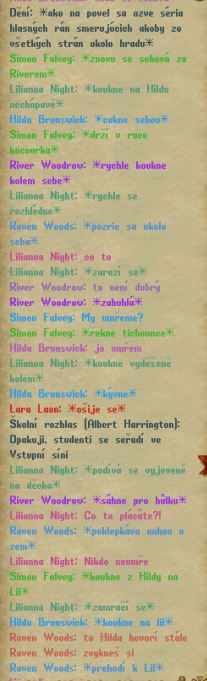 Dění: *ako na povel sa ozve séria
hlasných rán smerujúcich akoby zo
všetkých strán okolo hradu*
Simon Falvey: *znovu se schová za
Riverem*
Lilianna Night: *koukne na Hildu
nechápavě*
Hilda Brunswick: *cukne sebou*
Simon Falvey: *drží v ruce
kocourka*
River Woodrow: *rychle koukne
kolem sebe*
Lilianna Night: *rychle se
rozhlédne*
Raven Woods: *pozrie sa okolo
seba*
Lilianna Night: co to
Lilianna Night: *zarazí se*
River Woodrow: to není dobrý
River Woodrow: *zahuhlá*
Simon Falvey: My umřeme?
Simon Falvey: *řekne tichounce*
Hilda Brunswick: jo umřem
Lilianna Night: *koukne vyděšeně
kolem*
Hilda Brunswick: *kývne*
Lara Laon: *ošije se*
Školní rozhlas [Albert Harrington]:
Opakuji, studenti se seřadí ve
Vstupní síni
Lilianna Night: *podívá se vyjeveně
na děcka*
River Woodrow: *sáhne pro hůlku*
Lilianna Night: Co to plácáte?!
Raven Woods: *poklepkáva nohou o
zem*
Lilianna Night: Nikdo neumře
Simon Falvey: *koukne z Hildy na
Lil*
Lilianna Night: *zamračí se*
Hilda Brunswick: *koukne na lil*
Raven Woods: to Hilda hovorí stále
Raven Woods: zvykneš si
Raven Woods: *prehodí k Lil*